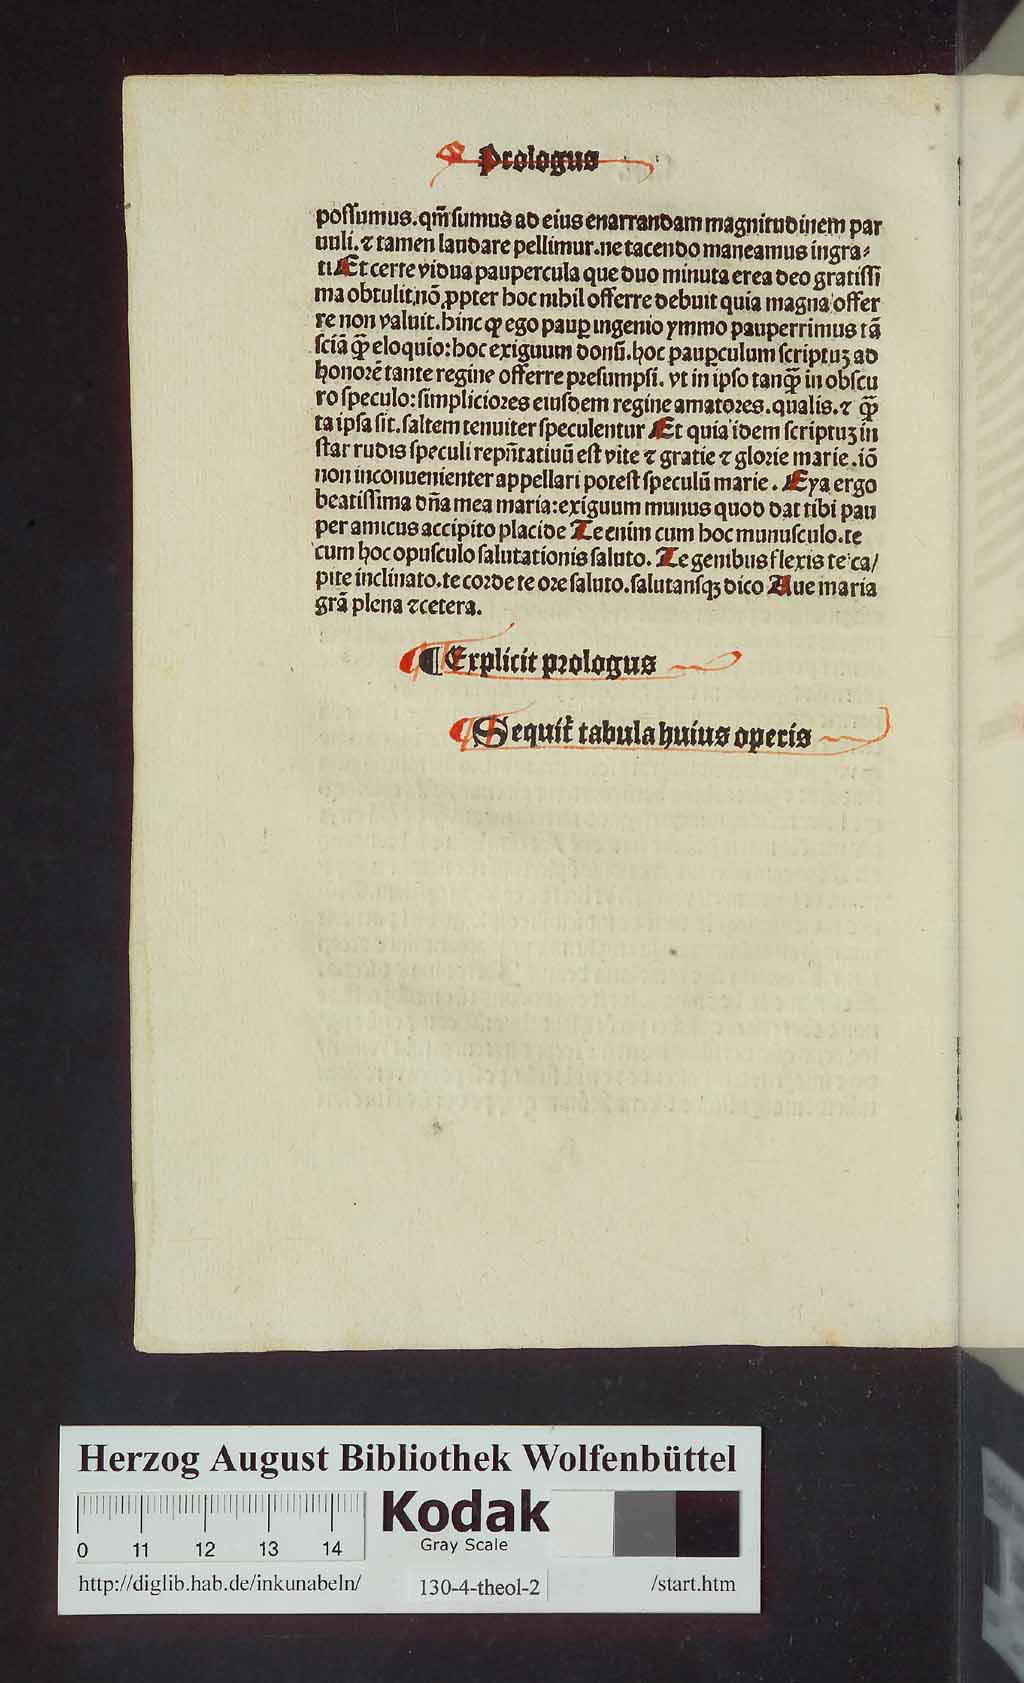 Prologus
possumus. qm̄ sumus ad eius enarrandam magnitudinem par
uuli. ⁊ tamen laudare pellimur. ne tacendo maneamus ingra⸗
ti Et certe vidua paupercula que duo minuta erea deo gratissi
ma obtulit, nō ꝓpter hoc nihil offerre debuit quia magna offer
re non valuit. hinc ꝙ ego paup̱ ingenio ymmo pauperrimus tā
sciā ꝙ̄ eloquio: hoc exiguum donū. hoc paup̱culum scriptuꝫ ad
honorē tante regine offerre presumpsi. vt in ipso tanꝙ̄ in obscu
ro speculo: simpliciores eiusdem regine amatores. qualis. ⁊ ꝙ̄
ta ipsa sit. saltem tenuiter speculentur Et quia idem scriptuꝫ in
star rudis speculi repn̄tatiuū est vite ⁊ gratie ⁊ glorie marie. iō
non inconuenienter appellari potest speculū marie. Eya ergo
beatissima dn̄a mea maria: exiguum munus quod dat tibi pau
per amicus accipito placide Te enim cum hoc munusculo. te
cum hoc opusculo salutationis saluto. Te genibus flexis te ca/
pite inclinato. te corde te ore saluto. salutansqꝫ dico Aue maria
grā plena ⁊cetera.
¶ Explicit prologus
Sequit̄ tabula huius operis
Herzog August Bibliothek Wolfenbüttel
Kodak
Gray Scale
0 11 12 13 14
http://diglib.hab.de/inkunabeln/ 130-4-theol-2 /start.htm